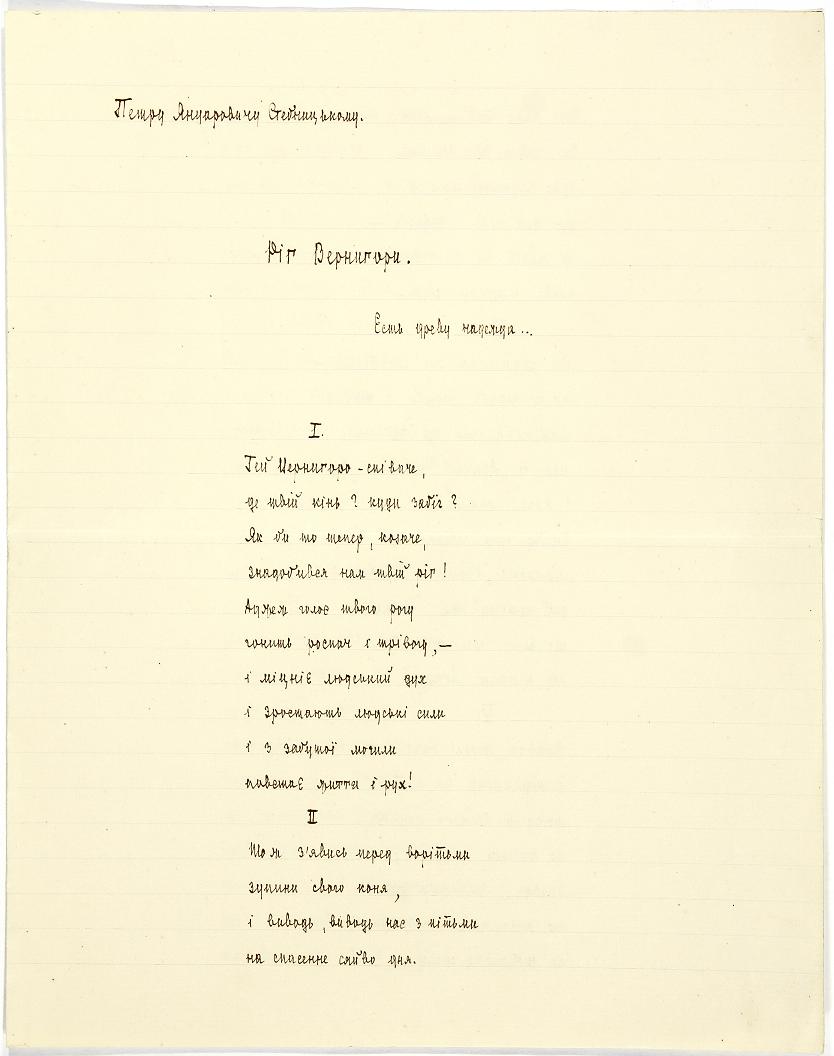 Петру Януаровичу Стебницькому.
Ріг Вернигори.
Есть древу надежда...
I.
Гей Вернигоро-співаче,
де твій кінь? куди забіг?
Як би то тепер, козаче,
знадобився нам твій ріг!
Аджеж голос твого рогу
гонить роспач і трівогу,—
і міцніє людський дух
і зростають людські сили
і з забутої могили
повстає життя і рух!
II
Що ж з'явись перед ворітьми
зупини свого коня,
і виводь, виводь нас з пітьми
на спасенне сяйво дня.